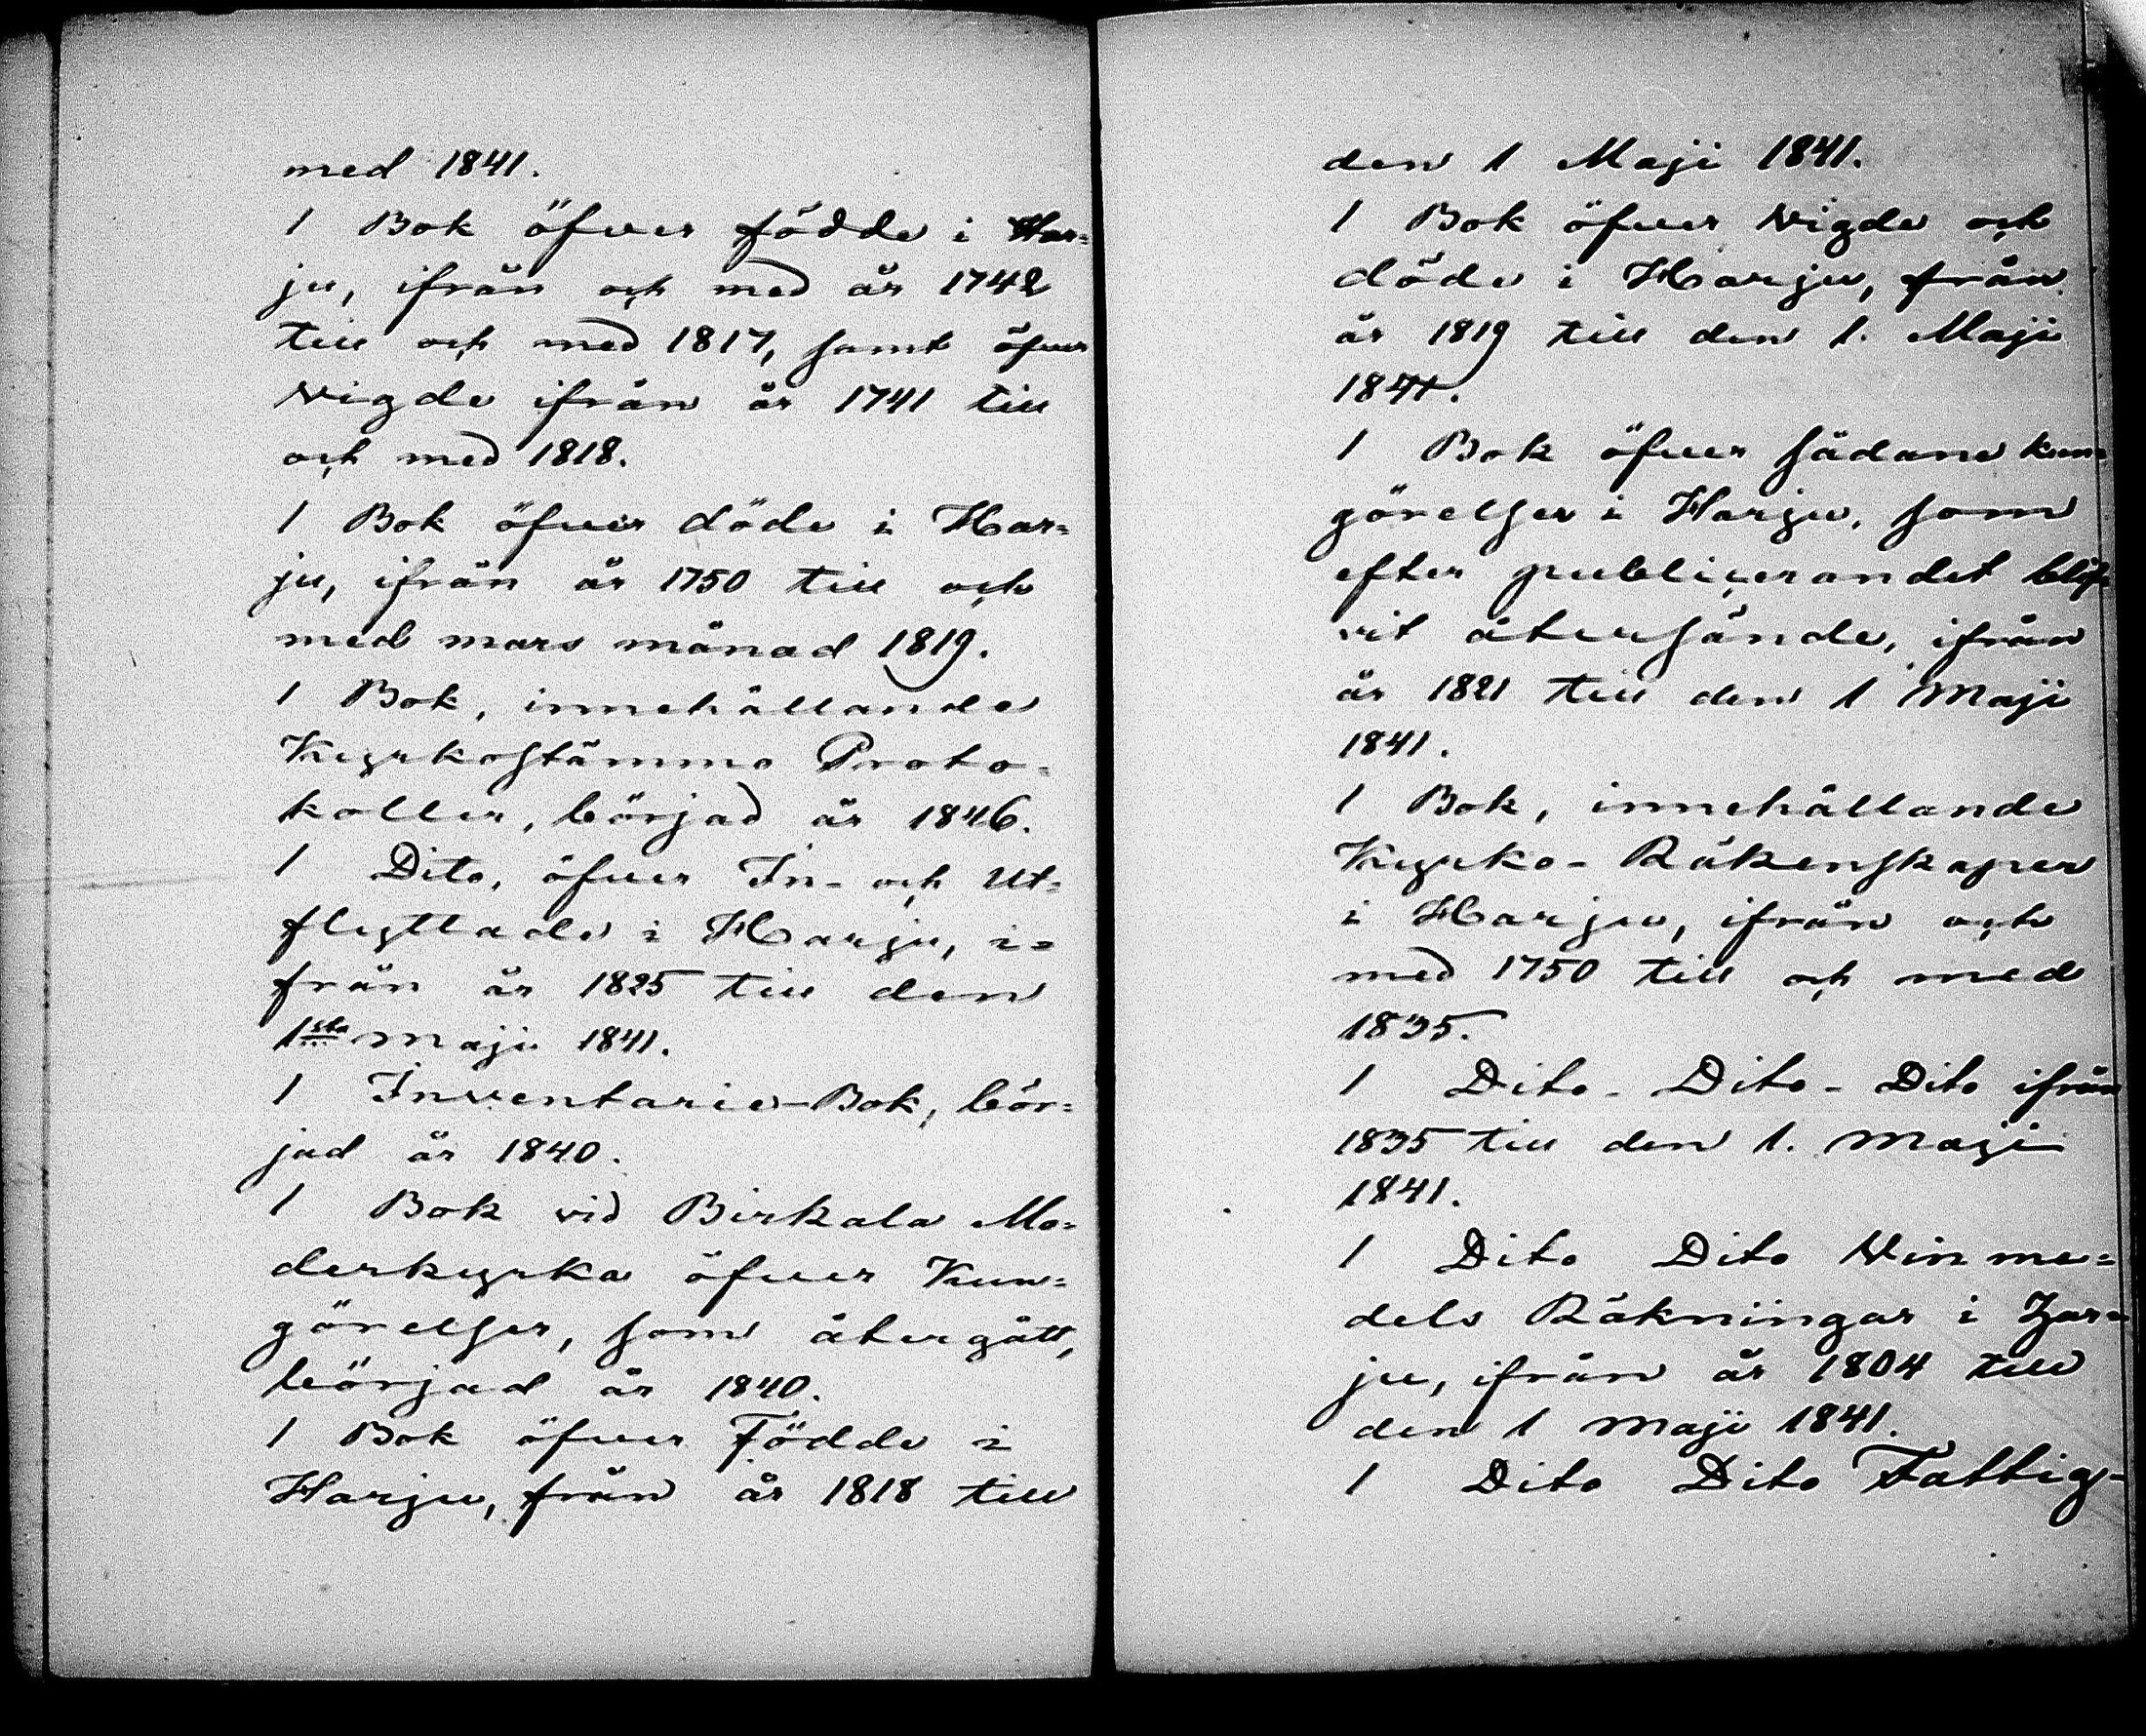 med 1841.
1 Bok öfver födde i Har=
ju, ifrån och med år 1742
till och med 1817, samt öfver
Vigde ifrån år 1741 till
och med 1818.
1 Bok öfver döde i Har=
ju, ifrån år 1750 till och
med mars månad 1819.
1 Bok, innehållande
Kyrkostämmo Proto=
koller, börjad år 1846.
1 Dito, öfver In- och Ut=
flyttade i Harju, i=
från år 1825 till den
1sta maji 1841.
1 Inventarie-Bok, bör=
jad år 1840.
1 Bok vid Birkala Mo=
derkyrka öfver Kun=
görelser, som återgått,
börjad år 1840.
1 Bok öfver Födde i
Harju, från år 1818 till
den 1 Maji 1841.
1 Bok öfver Vigde och
döde i Harju, från
år 1819 till den 1. Maji
1841.
1 Bok öfver sådane kun=
görelser i Harju, som
efter publicerandet blif
vit återsände, ifrån
år 1821 till den 1 Maji
1841.
1 Bok, innehållande
Kyrko-Räkenskaper
i Harju, ifrån och
med 1750 till och med
1835.
1 Dito - Dito - Dito ifrån
1835 till den 1. Maji
1841.
1 Dito Dito Vin me=
dels Räkningar i Har=
ju, ifrån år 1804 till
den 1 maji 1841.
1 Dito Dito Fattig-